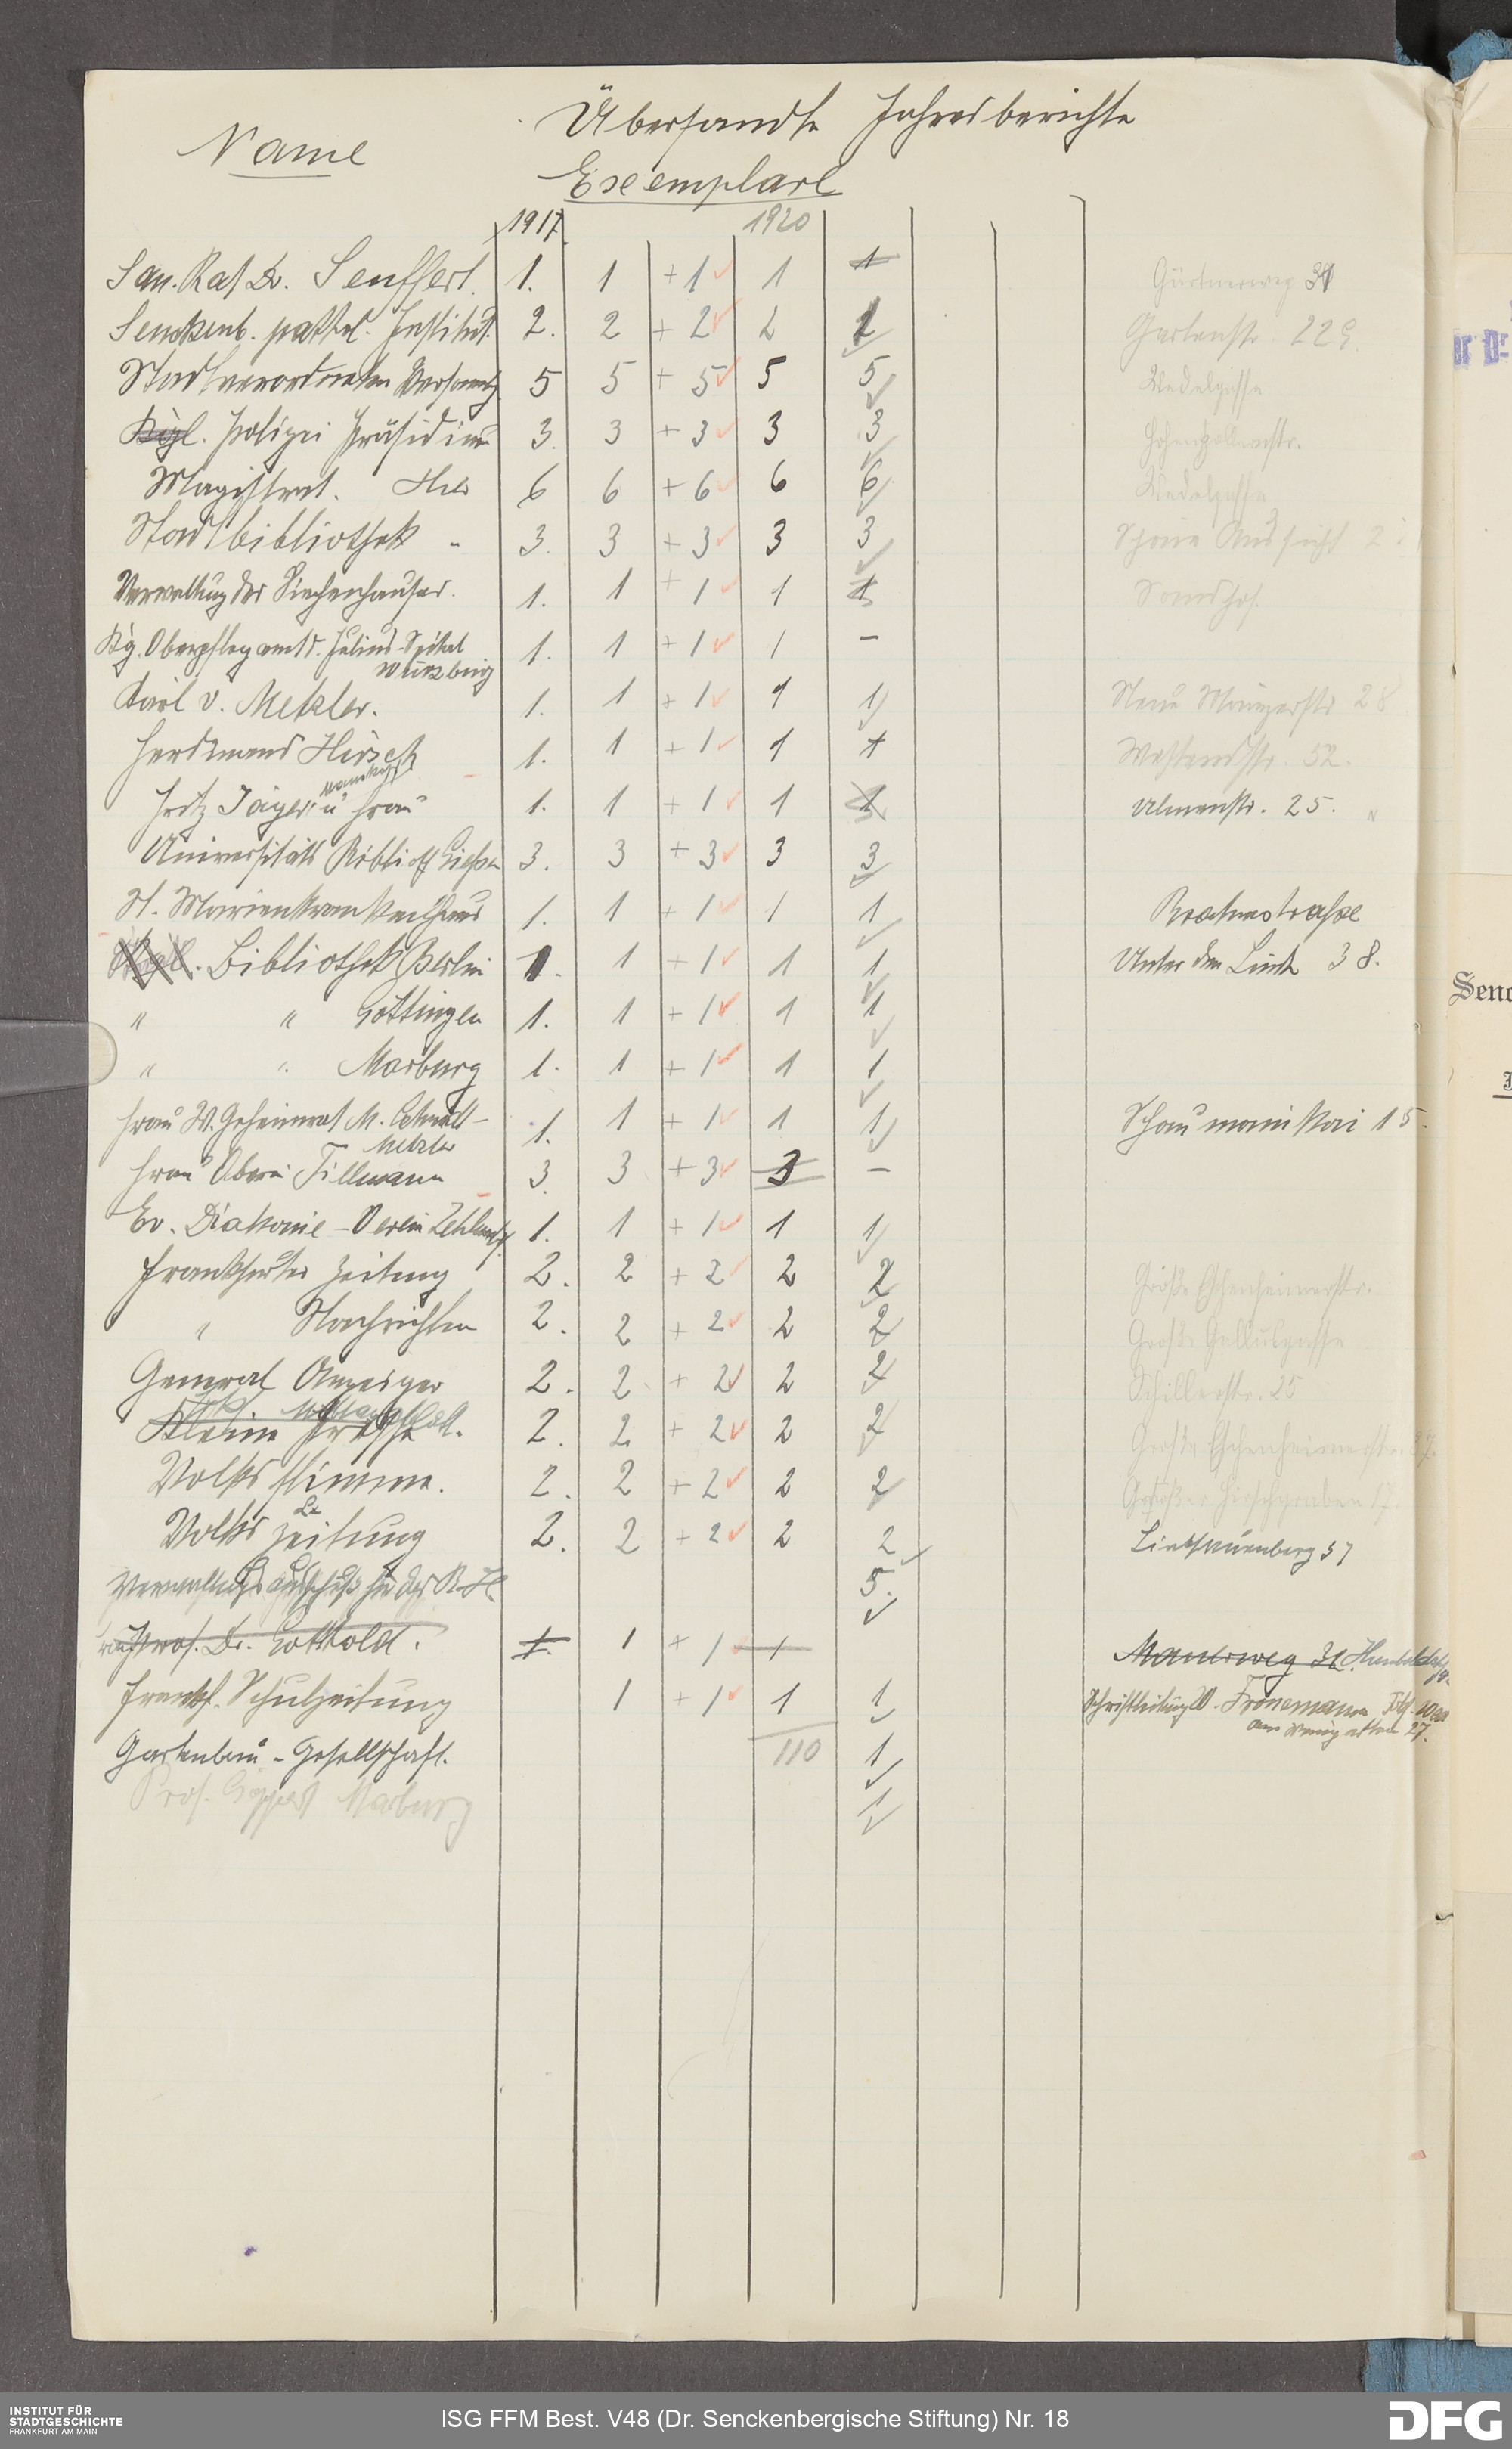 Übersandte Jahresberichte
Name
Exemplare
1917. 1920
San. Rat Dr. Senffert. 1. 1 + 1 1 1 Gärtnerweg 31
Senckenb. pathol. Institut. 2. 2 + 2 2 2 Gartenstr. 229.
Stadtverordneten Versamlg 5 5 + 5 5 5 Bedelgasse
Kgl. Polizei Präsidium 3. 3 + 3 3 3 Hohenzollernstr.
Magistrat. Hier 6 6 + 6 6 6 Bedelgasse
Stadtbibliothek " 3. 3 + 3 3 3 Schöne Aussicht 2
Verwaltung des Siechenhauses. 1. 1 + 1 1 1 Sandhof.
Kg. Oberpflegamt d. Julius-Spital 1. 1 + 1 1 –
Würzburg
Karl v. Metzler. 1. 1 + 1 1 1 Neue Mainzerstr 28
Ferdinand Hirsch 1. 1 + 1 1 1 Westendstr. 52.
Fritz Jäger u Frau 1. 1 + 1 1 1 Ulmenstr. 25.
Universitäts Biblioth Giessen 3. 3 + 3 3 3
St. Marienkrankenhaus 1. 1 + 1 1 1 Brahmstrasse
Kgl. Bibliothek Berlin 1. 1 + 1 1 1 Unter den Linden 38.
" " Göttingen 1. 1 + 1 1 1
" " Marburg 1. 1 + 1 1 1
Frau W. Geheimrat M. Schmidt- 1. 1 + 1 1 1 Schaumainkai 15.
Metzler
Frau Oberin Tillmann 3. 3 + 3 3 –
Ev. Diakonie-Verein Zehlendf. 1. 1 + 1 1 1
Frankfurter Zeitung 2. 2 + 2 2 2 Große Eschenheimerstr.
" Nachrichten 2. 2 + 2 2 2 Große Gallusgasse
General Anzeiger 2. 2 + 2 2 2 Schillerstr. 25
Kleine Presse. 2. 2 + 2 2 2 Große Eschenheimerstr. 37.
Volksstimme. 2. 2 + 2 2 2 Großer Hirschgraben 17.
Volkszeitung 2. 2 + 2 2 2 Liebfrauenberg 37
Verwaltungs Ausschuß 5.
Prof. Dr. Gotthold. 1. 1 + 1 1 Mauerweg 31.
Frankf. Schulzeitung 1 + 1 1 1 Schriftleitung W. Fronemann
Gartenbau-Gesellschaft. 110 1
Prof. Göppert Marburg 1
INSTITUT FÜR
STADTGESCHICHTE
FRANKFURT AM MAIN
ISG FFM Best. V48 (Dr. Senckenbergische Stiftung) Nr. 18
DFG